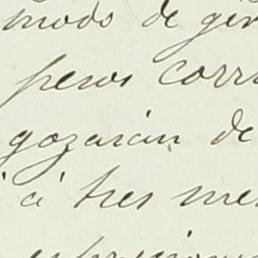 modo de gir
pesos corri
gozarán de
á tres me